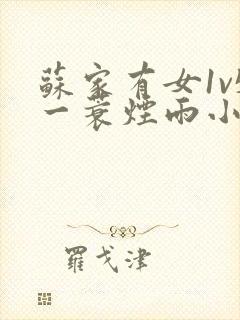 蘇家有女1v
一蓑煙雨小
羅戈津